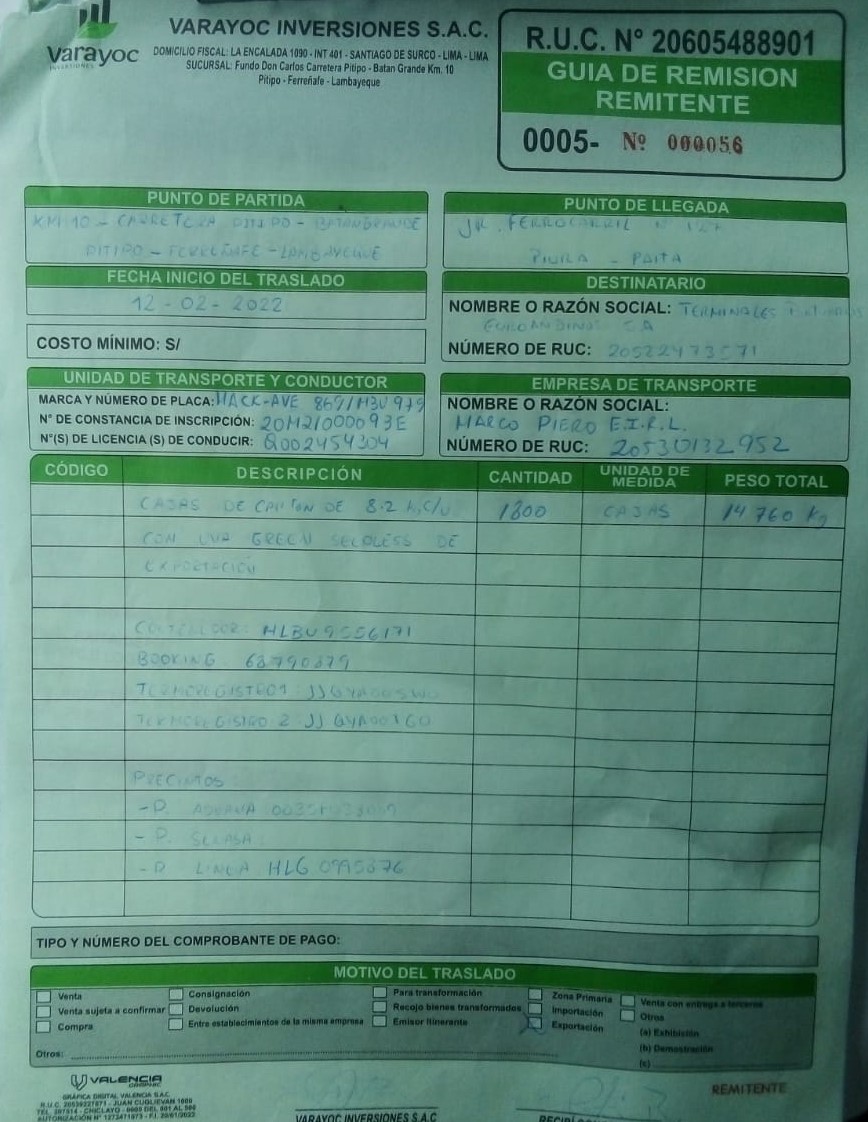 Varayoc
INVERSIONES
VARAYOC INVERSIONES S.A.C.
DOMICILIO FISCAL: LA ENCALADA 1090 - INT 401 - SANTIAGO DE SURCO - LIMA - LIMA
SUCURSAL: Fundo Don Carlos Carretera Pitipo - Batan Grande Km. 10
Pitipo - Ferreñafe - Lambayeque
R.U.C. Nº 20605488901
GUIA DE REMISION
REMITENTE
0005- Nº 000056
PUNTO DE PARTIDA
KM 10 - CARRETERA PITIPO - BATANGRANDE
PITIPO - FERREÑAFE - LAMBAYEQUE
PUNTO DE LLEGADA
JR. FERROCARRIL N
PIURA - PAITA
FECHA INICIO DEL TRASLADO
12-02-2022
COSTO MÍNIMO: S/
DESTINATARIO
NOMBRE O RAZÓN SOCIAL: TERMINALES
EUROANDINOS SA
NÚMERO DE RUC: 20522473571
UNIDAD DE TRANSPORTE Y CONDUCTOR
MARCA Y NÚMERO DE PLACA: MACK-AVE 869/M3U979
N° DE CONSTANCIA DE INSCRIPCIÓN: 20M21000093E
N°(S) DE LICENCIA (S) DE CONDUCIR: Q002454304
EMPRESA DE TRANSPORTE
NOMBRE O RAZÓN SOCIAL:
MARCO PIERO E.I.R.L.
NÚMERO DE RUC: 20530132952
CÓDIGO DESCRIPCIÓN CANTIDAD UNIDAD DE MEDIDA PESO TOTAL
CAJAS DE CARTON DE 8.2 K, C/U 1800 CAJAS 14 760 Kg
CON UVA GREEN SEEDLESS DE
EXPORTACIÓN
CONTENEDOR: HLBU9556171
BOOKING 68790879
TERMOREGISTRO1:
TERMOREGISTRO 2
PRECINTOS
-P. ADUANA
-P. SENASA:
-P LINEA HLG 0995376
TIPO Y NÚMERO DEL COMPROBANTE DE PAGO:
MOTIVO DEL TRASLADO
Venta Consignación Para transformación Zona Primaria Venta con entrega a terceros
Venta sujeta a confirmar Devolución Recojo bienes transformados Importación Otros
Compra Entre establecimientos de la misma empresa Emisor Itinerante Exportación (a) Exhibición
(b) Demostración
Otros: (c)
VALENCIA
GRÁFICA DIGITAL VALENCIA S.A.C.
R.U.C. 20539227871 - JUAN CUGLIEVAN 1088
VARAYOC INVERSIONES S.A.C
REMITENTE